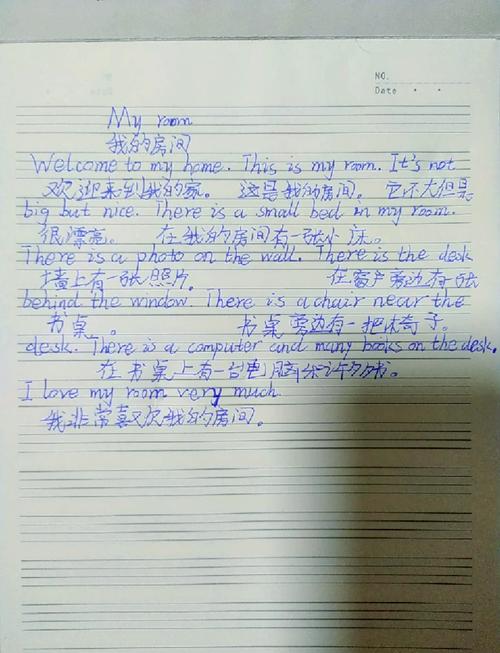 NO.
Date
My room
我的房间
Welcome to my home. This is my room. It's not
欢迎来到我的家。 这是我的房间。 它不大但是
big but nice. There is a small bed in my room.
很漂亮。 在我的房间有一张小床。
There is a photo on the wall. There is the desk
墙上有一张照片。 在窗户旁边有一张
behind the window. There is a chair near the
书桌。 书桌旁边有一把椅子。
desk. There is a computer and many books on the desk.
在书桌上有一台电脑和许多书。
I love my room very much
我非常喜欢我的房间。